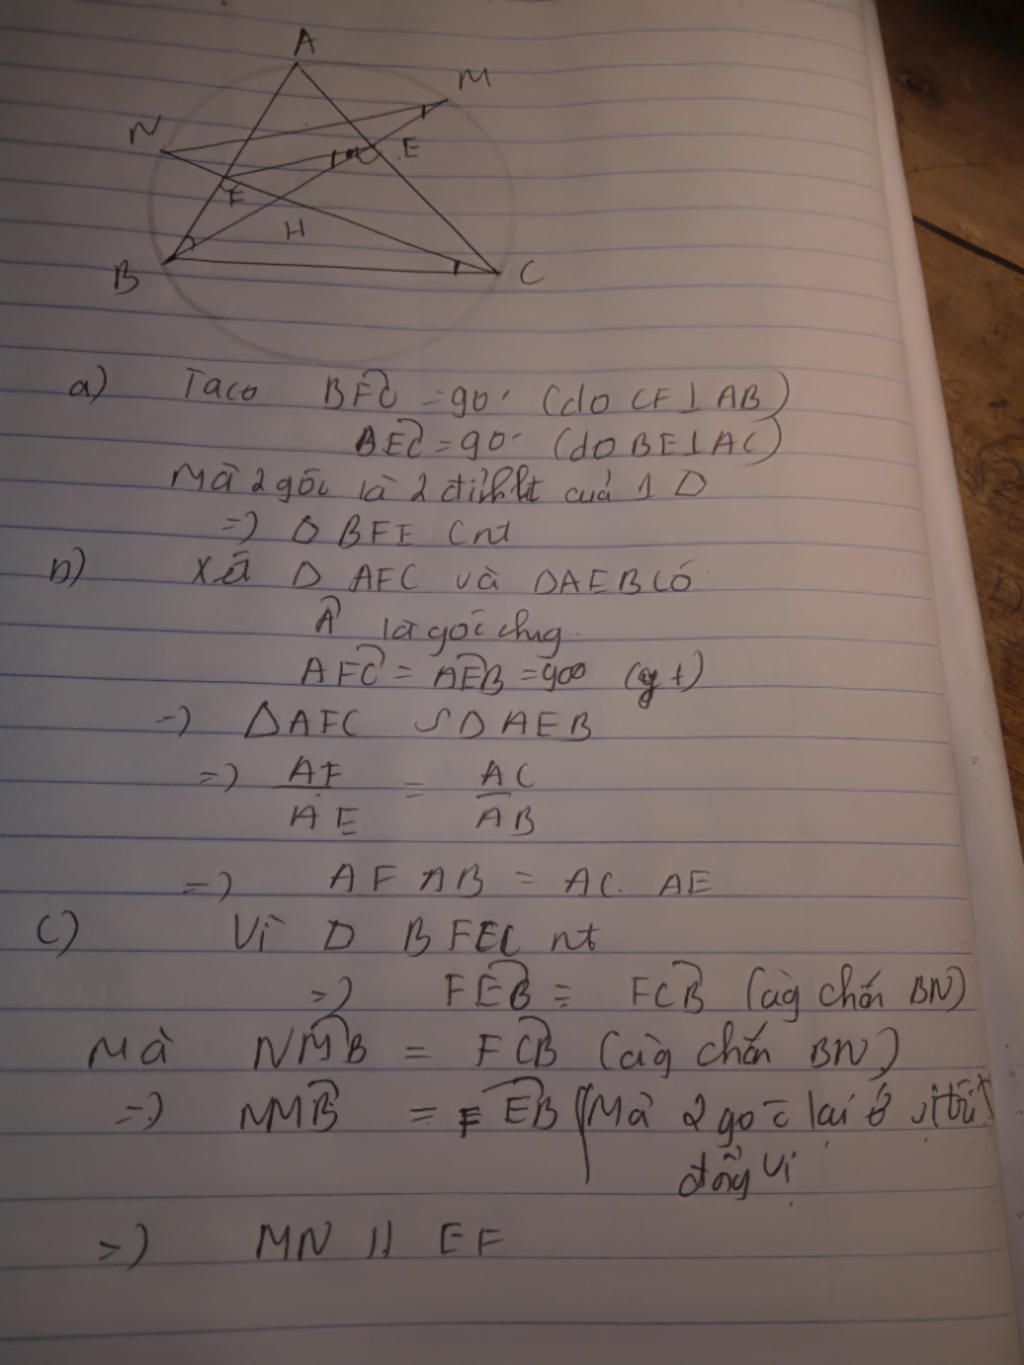 A
M
N
E
F
H
B
C
a) Taco BFC = 90° (do CF⊥AB)
BEC = 90° (do BE⊥AC)
Mà 2 góc là 2 đỉnh của 1 D
=> D BFE Cnt
b) Xét D AFC và DAEB có
A là góc chug.
AFC = AEB = 900 (gt)
=> ΔAFC ∽ D AEB
=> AF/AE = AC/AB
=> AF.AB = AC.AE
C) Vì D BFEC nt
=> FEB = FCB (cùg chắn BN)
Mà NMB = FCB (cùg chắn BN)
=> NMB = FEB (Mà 2 góc lại ở vị trí
đồng vị
=> MN // EF